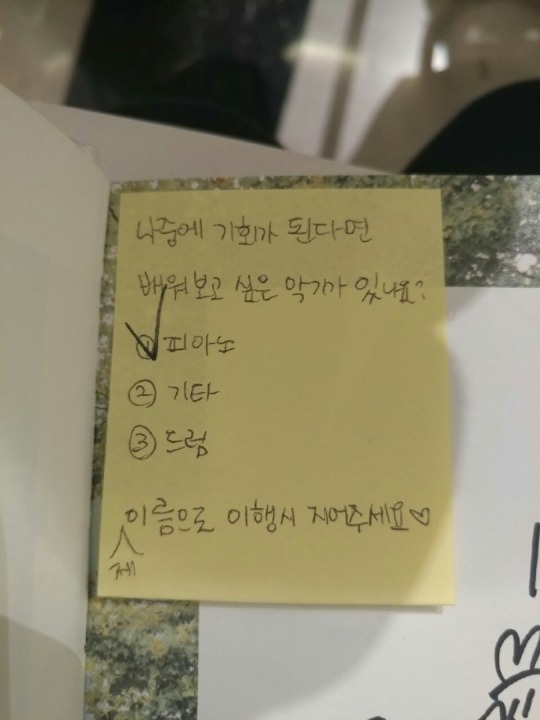 나중에 기회가 된다면
배워보고 싶은 악기가 있나요?
① 피아노
② 기타
③ 드럼
제 이름으로 이행시 지어주세요♡